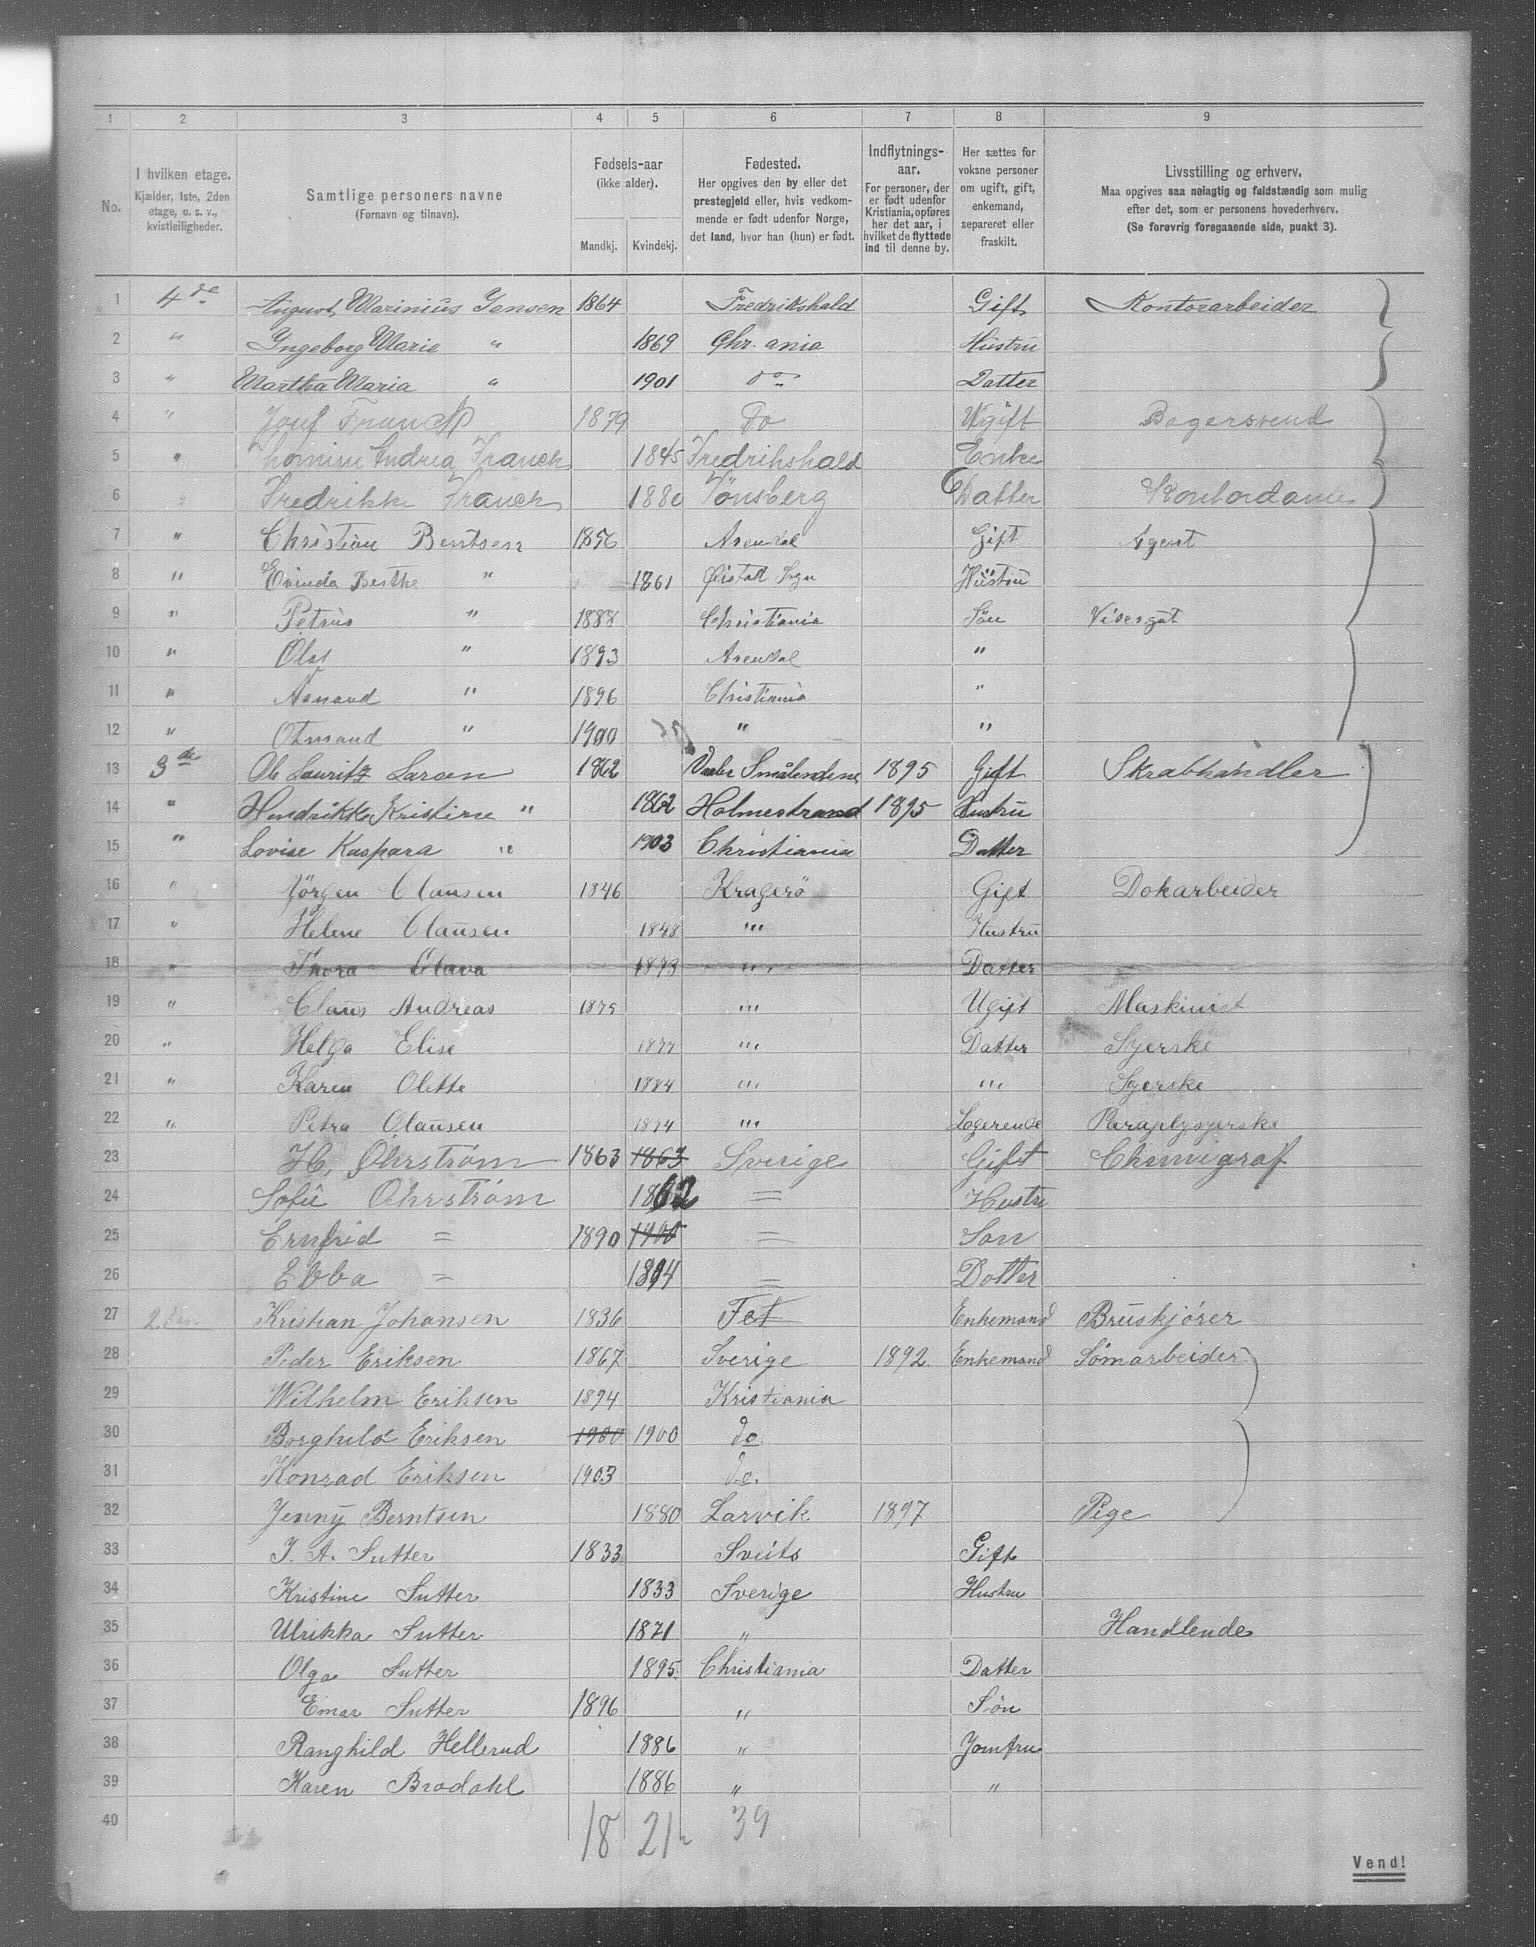 1 2 3 4 5 6 7 8 9
No.
I hvilken etage.
Kjælder, 1ste, 2den
etage, o. s. v.,
kvistleiligheder.
Samtlige personers navne
(Fornavn og tilnavn).
Fødsels-aar
(ikke alder).
Mandkj. Kvindekj.
Fødested.
Her opgives den by eller det
prestegjeld eller, hvis vedkom-
mende er født udenfor Norge,
det land, hvor han (hun) er født.
Indflytnings-
aar.
For personer, der
er født udenfor
Kristiania, opføres
her det aar, i
hvilket de flyttede
ind til denne by.
Her sættes for
voksne personer
om ugift, gift,
enkemand,
separeret eller
fraskilt.
Livsstilling og erhverv.
Maa opgives saa nøiagtig og fuldstændig som mulig
efter det, som er personens hovederhverv.
(Se forøvrig foregaaende side, punkt 3).
1 4de August Marinius Jensen 1864 Fredrikshald Gift Kontorarbeider
2 " Ingeborg Marie " 1869 Chr.ania Hustru
3 " Martha Maria " 1901 do Datter
4 " Josef Franck 1879 Do Ugift Bagersvend
5 " Thomine Andrea Franck 1845 Fredrikshald Enke
6 " Fredrikke Franck 1880 Tønsberg Datter Kontordame
7 " Christian Bentsen 1856 Arendal Gift Agent
8 " Berthe " 1861 Hustru
9 " Petrus " 1888 Christiania Søn Visergut
10 " Olaf " 1893 Arendal "
11 " Amand " 1896 Christiania "
12 " Otmand " 1900 " "
13 3de Ole Lauritz Larsen 1862 Vaaler Smålenene 1895 Gift Skrabhandler
14 " Hendrikke Kristine " 1862 Holmestrand 1895 Hustru
15 " Lovise Kaspara " 1903 Christiania Datter
16 " Jörgen Clausen 1846 Kragerö Gift Dokarbeider
17 " Helene Clausen 1848 "" Hustru
18 " Thora Olava 1873 "" Datter
19 " Claus Andreas 1875 "" Ugift Maskinist
20 " Helga Elise 1877 "" Datter Syerske
21 " Karen Olette 1884 "" "" Syerske
22 " Petra Clausen 1874 "" Logerende Paraplysyerske
23 H. Öhrström 1863 1863 Sverige Gift Chemigraf
24 Sofie Öhrström 1862 = Hustru
25 Ernfrid = 1890 1900 = Son
26 Ebba = 1894 = Dotter
27 2den Kristian Johansen 1836 Fet Enkemand Bruskjörer
28 Peder Eriksen 1867 Sverige 1892. Enkemand Sömarbeider
29 Wilhelm Eriksen 1894 Kristiania
30 Borghild Eriksen 1900 1900 do
31 Konrad Eriksen 1903 do.
32 Jenny Berntsen 1880 Larvik 1897 Pige
33 J. A. Sutter 1833 Sveits Gift
34 Kristine Sutter 1833 Sverige Hustru
35 Ulrikka Sutter 1871 " Handlende
36 Olga Sutter 1895. Christiania Datter
37 Einar Sutter 1896 " Søn
38 Ranghild Hellerud 1886 " Jomfru
39 Karen Brodahl 1886 " "
40 18 21 39
Vend!